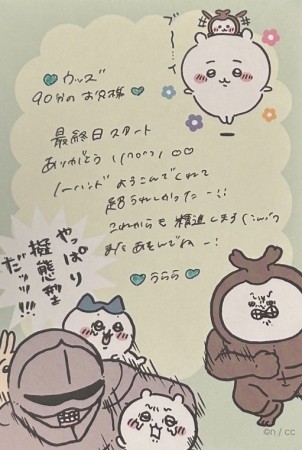 ブーーン…
ウッズ
90分の お兄様
最終日スタート
ありがとう \(^o^)/ ♡♡
ノーハンド よろこんでくれて
これからも 精進します(;ω;)
またあそんでねー!
♡ うらら ♡
やっぱり
擬態型
だッッ!!!
©n / cc